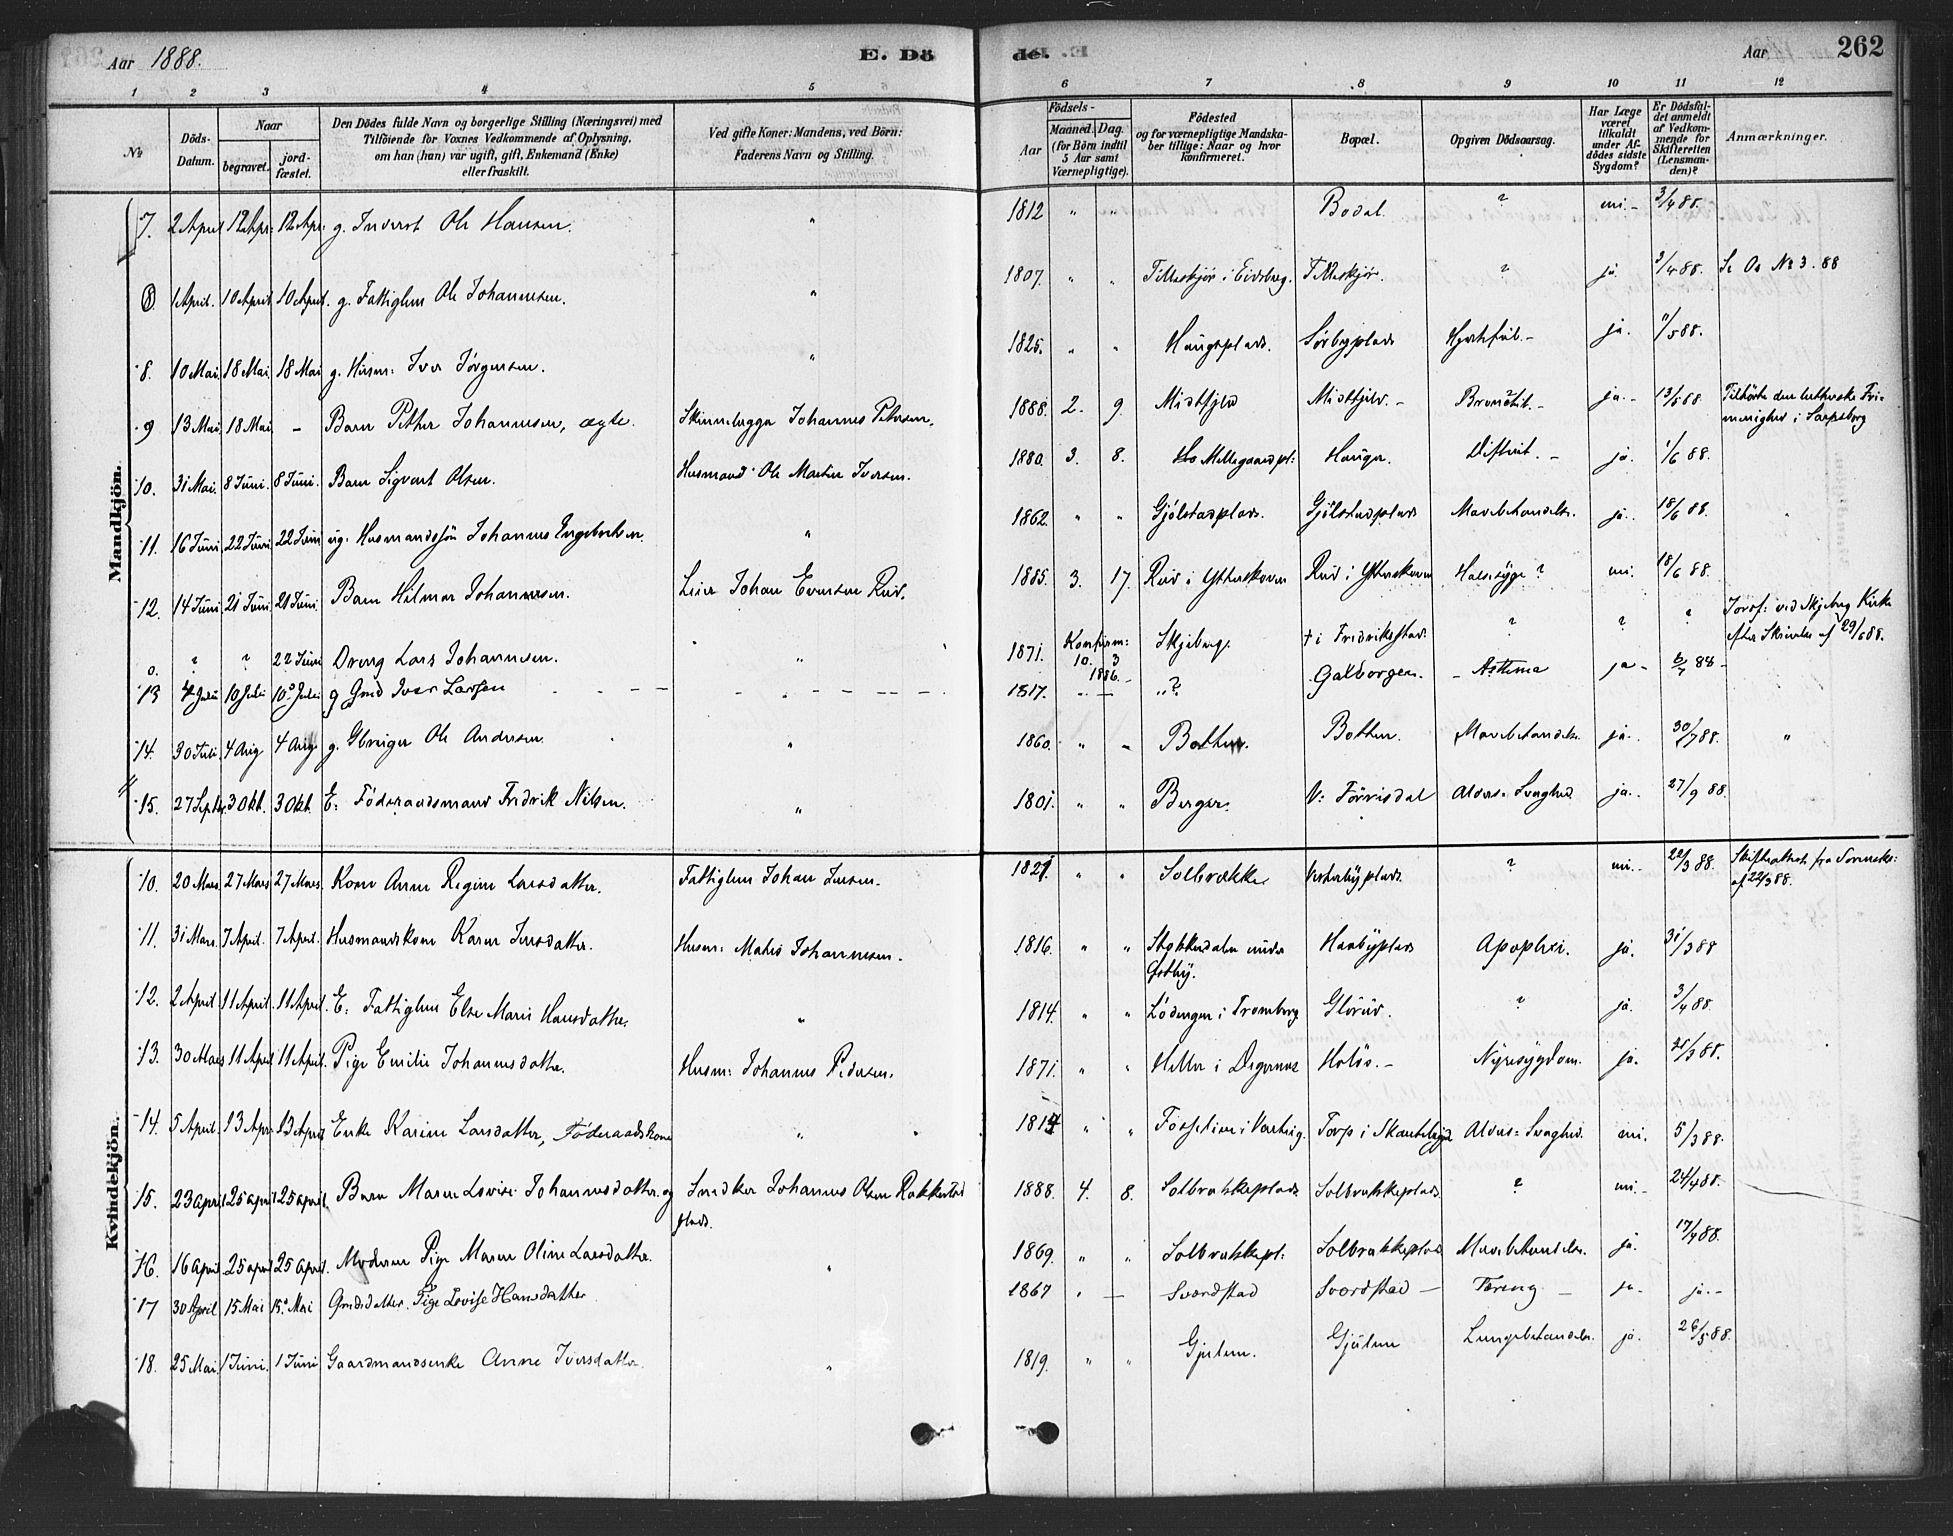 Aar 1888. E. Dö
de. Aar 262
1 2 3 4 5
6 7 8 9 10 11 12
№ Döds-Datum. Naar begravet. jord-fæstet. Den Dödes fulde Navn og borgerlige Stilling (Næringsvei) med Tilföiende for Voxnes Vedkommende af Oplysning, om han (hun) var ugift, gift, Enkemand (Enke) eller fraskilt. Ved gifte Koner: Mandens, ved Börn: Faderens Navn og Stilling.
Födsels- Aar Maaned. Dag. (for Börn indtil 5 Aar samt Værnepligtige). Födested og for værnepligtige Mandskaber tillige: Naar og hvor konfirmeret. Bopæl. Opgiven Dödsaarsag. Har Læge været tilkaldt under Afdödes sidste Sygdom? Er Dödsfaldet anmeldt af Vedkommende for Skifteretten (Lensmanden)? Anmærkninger.
Mandkjön.
7. 2 April 12 Apr: 12 Apr: g. Inderst Ole Hansen. " 1812 " " Bodal. ? nei.- 3/4 88.
8. 1 April. 10 April 10 April. g. Fattiglem Ole Johannesen. " 1807. " " Tilleskjør i Eidsberg. Tilleskjør. ? ja. 3/4 88. Se Os № 3. 88
8. 10 Mai. 18 Mai. 18 Mai g. Husm: Iver Jørgensen. " 1825. " " Haugsplads. Sørbyplads Hjertefeil.- ja. 11/5 88.
9 13 Mai. 18 Mai. - Barn Petter Johannesen, ægte. Skinnelægger Johannes Petersen. 1888. 2. 9. Midtfjeld Midtfjeld.- Bronchit.- ja.- 13/5 88. Tilhørte den lutherske Frimenighed i Sarpsborg
10. 31 Mai. 8 Juni. 8 Juni. Barn Sigvart Olsen. Husmand Ole Martin Iversen. 1880. 3. 8. Mellegaardpl: Haugen. Difterit.- ja. 1/6 88.
11. 16 Juni 22 Juni. 22 Juni ug. Husmandssøn Johannes Engebretsen. " 1862. " " Gjølstadplads. Gjølstadplads Mavebetændelse. ja. 18/6 88. "
12. 14 Juni. 21 Juni. 21 Juni. Barn Hilmar Johannesen. Leier Johan Evensen Rud. 1885. 3. 17. Rud i Ytterskoven Rud i Ytterskoven Halssyge? nei. 18/6 88.
0. ? ? 22 Juni Dreng Lars Johannesen. " 1871. Konfirm: 10. 3 1886. Skjeberg. † i Fredriksstad. ? ? ? Jordf: ved Skjeberg Kirke efter Skrivelse af 29/6 88.
13 4 Juli 10 Juli 10 Juli g Gmd Iver Larsen - - - " - - - 1817. " - "? Galborgen. - Asthma ja - 6/7 88 -
14. 30 Juli. 4 Aug 4 Aug. g. Ole Andersen. " 1860. " " Botten. Botten. Mavebetændelse. ja. 30/7 88. "
15. 27 Septbr. 3 Okt. 3 Okt. E: Föderaadsmand Fredrik Nilsen. " 1801. " " Berger. V: Förrisdal Alders-Svaghed. ja. 27/9 88.
Kvindekjön.
10. 20 Mars. 27 Mars 27 Mars. Kone Anne Regine Larsdatter. Fattiglem Johan Jensen. 1821. " " Solbrække Vesterbyplads. ? nei.- 22/3 88. Skifteattest fra af 22/3 88.
11. 31 Mars. 7 April. 7 April. Husmandskone Karen Jensdatter. Husm: Mathis Johannesen. 1816. " " Stokkedalen under Østby. Haabyplads Apoplexi. ja. 31/3 88
12. 2 April. 11 April. 11 April. E: Fattiglem Else Marie Hansdatter. " 1814. " " Lödengen i Tromborg. Glörud. ? ja. 3/4 88.
13. 30 Mars 11 April 11 April. Pige Emilie Johannesdatter. Husm: Johannes Pedersen. 1871. " " Heller i Degernes Holös.- Nyresygdom. ja. 31/3 88.
14. 5 April. 13 Apr. 13 April Enke Karine Larsdatter, Föderaadskone " 1814 " " i Varteig. Torp i Alders-Svaghed. nei. 5/3 88.
15. 23 april. 25 april. 25 april. Barn Maren Lovise Johannesdatter. og Snedker Johannes Olsen Rakkestad plads. 1888. 4. 8. Solbrækkeplads Solbrækkeplads. ? nei.- 24/4 88.
16. 16 april 25 april 25 april. Moderen Pige Maren Oline Larsdatter. " 1869. " " Solbrækkepl: Solbrækkeplads Mavebetændelse. ja. 17/4 88.
17 30 April 15 Mai 15 Mai Gmdsdatter. Pige Lovise Hansdatter 1867 " - Sværdstad Sværdstad - Tæring - ja- ja.-
18. 25 Mai. 1 Juni. 1 Juni Gaardmandsenke Anne Iversdatter. " 1819. " " Gjulem. Gjulem Lungebetændelse. ja. 26/5 88.